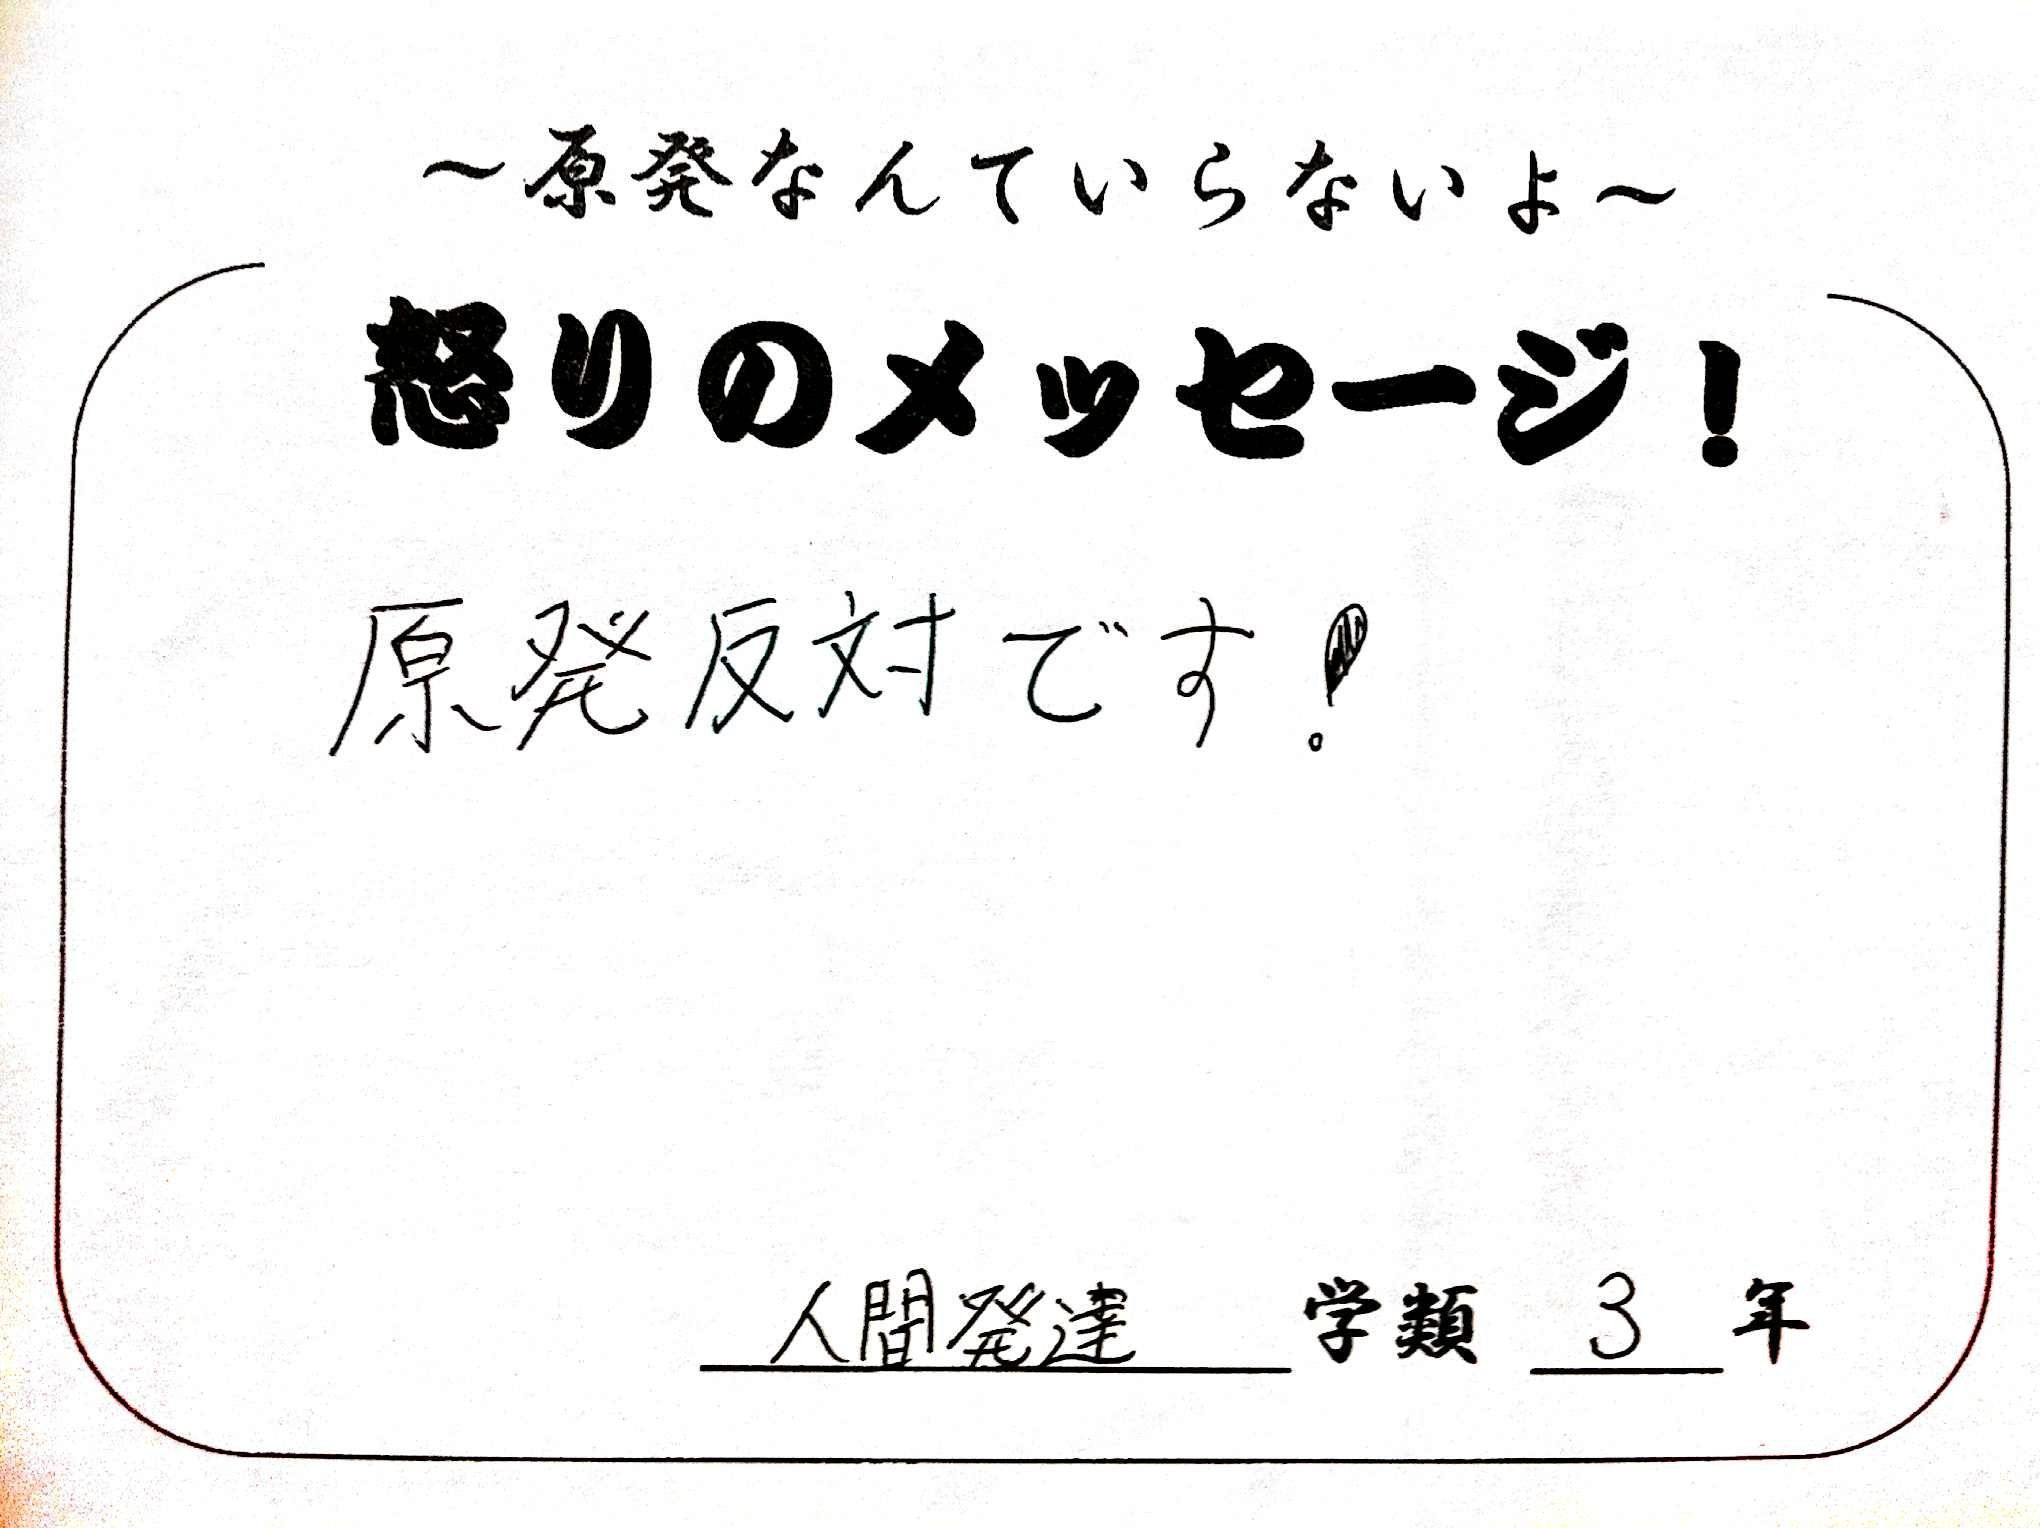 〜原発なんていらないよ〜
怒りのメッセージ！
原発反対です！
人間発達 学類 3 年